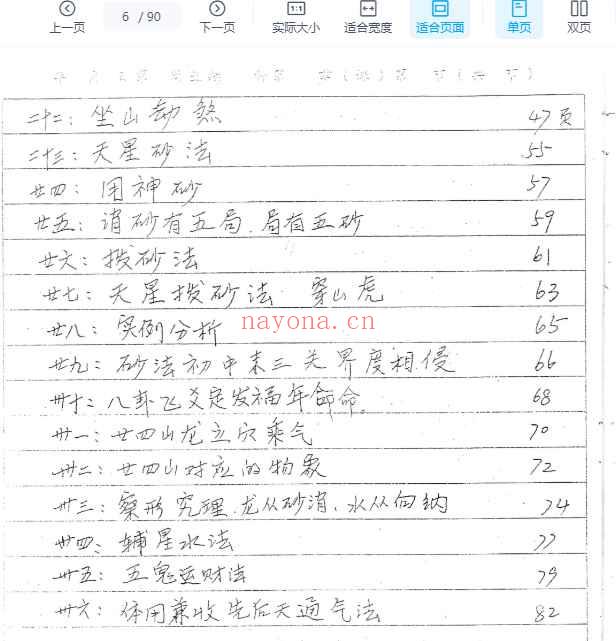 上一页 6 / 90 下一页 实际大小 适合宽度 适合页面 单页 双页
二十二：坐山劫煞 47页
二十三：天星砂法 55
廿四：用神砂 57
廿五：消砂有五局.局有五砂 59
廿六：拨砂法 61
廿七：天星拨砂法 穿山虎 63
nayona.cn
廿八：实例分析 65
廿九：砂法初中末三关界度相侵 66
卅十：八卦飞爻定发福年命 68
卅一：廿四山龙立穴乘气 70
卅二：廿四山对应的物象 72
卅三：察形究理.龙从砂消、水从向纳 74
卅四、辅星水法 77
卅五：五鬼运财法 79
卅六：体用兼收先后天通气法 82